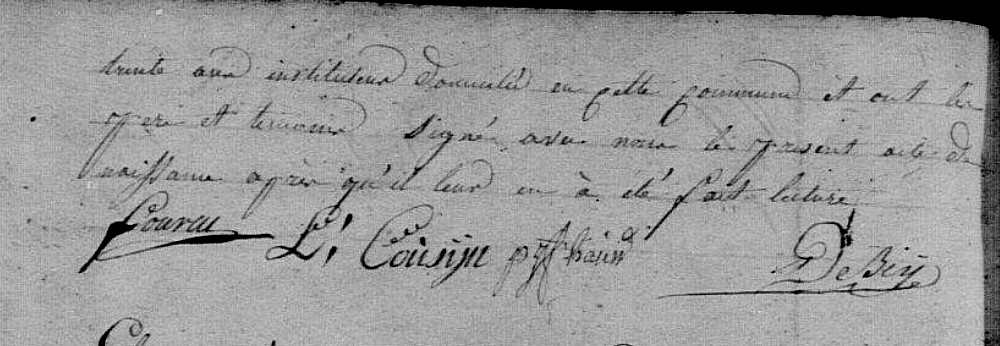 trente ans instituteur domicilié en cette commune et ont les
pere et temoins signé avec nous le present acte de
naissance après qu'il leur en à été fait lecture
L. Cousyn
De Bey